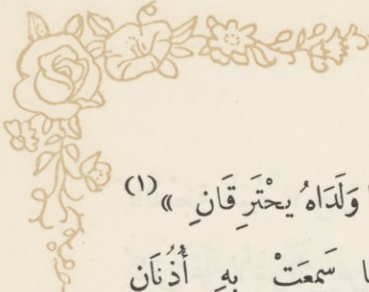 وَلَدَاهُ يحْتَرِقَانِ » (١)
سَمعَتْ بِهِ أُذُنَان